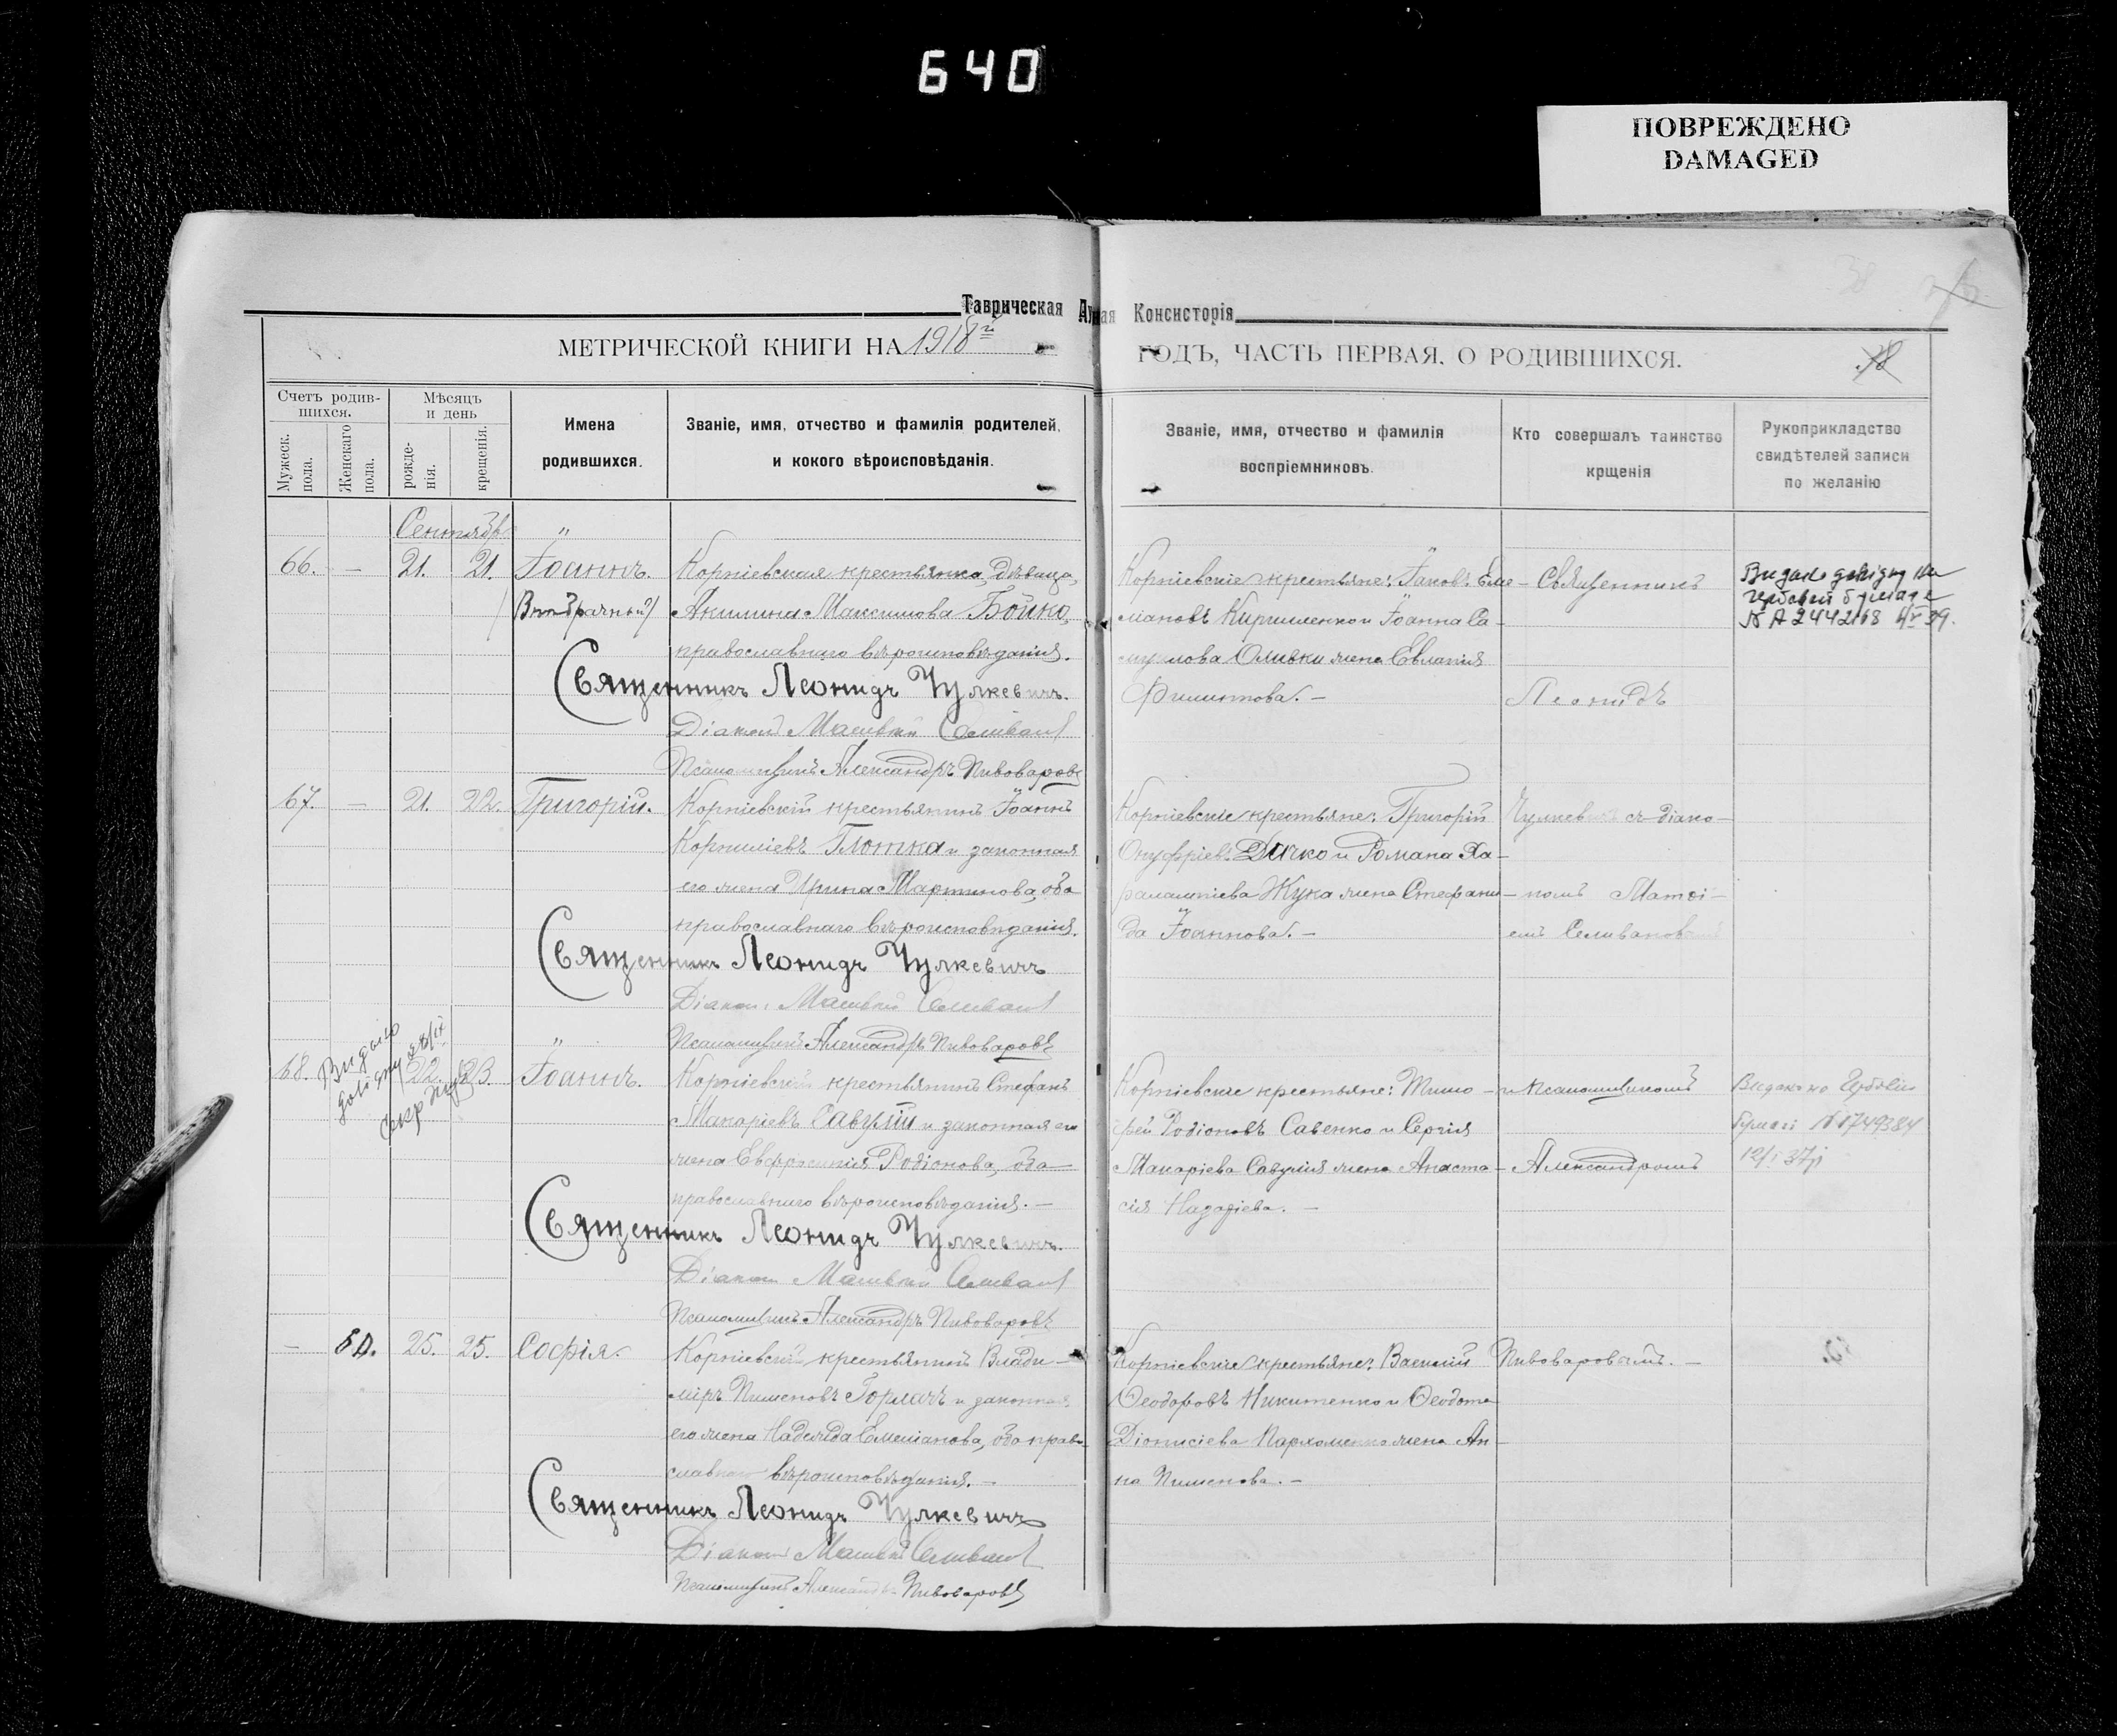 640
ПОВРЕЖДЕНО
DAMAGED
Таврическая
Консисторія
МЕТРИЧЕСКОЙ КНИГИ НА 1918 й
ГОДЪ, ЧАСТЬ ПЕРВАЯ. О РОДИВШИХСЯ.
Счетъ родив-
шихся.
Мѣсяцъ
и день
Мужеск.
пола.
Женскаго
пола.
рожде-
нія.
крещенія.
Имена
родившихся.
Званіе, имя, отчество и фамилія родителей,
и кокого вѣроисповѣданія.
Званіе, имя, отчество и фамилія
воспріемниковъ.
Кто совершалъ таинство
крщенія
Рукоприкладство
свидѣтелей записи
по желанію
Сентябр
66. — 21. 21. Іоаннъ.
Корніевская крестьянка, дѣвица,
Максимова Бойко,
православнаго вѣроисповѣданія.
Священникъ Леонидъ Чулкевичъ.
Діаконъ Матвѣй
Псаломщикъ Александръ Пивоваровъ
Корніевскіе крестьяне: Іаковъ Еме-
лиановъ Кириленко и Іоанна Са-
жена Евлампія
Филиппова. —
Священникъ
Леонидъ
№ А 244268
67. — 21. 22. Григорій.
Корніевскій крестьянинъ Іоаннъ
Корниліевъ Глотка и законная
его жена Ирина Мартинова, оба
православнаго вѣроисповѣданія.
Священникъ Леонидъ Чулкевичъ
Діаконъ Матвѣй
Псаломщикъ Александръ Пивоваровъ
Корніевскіе крестьяне: Григорій
Онуфріевъ Дачко и Романа Ха-
ралампіева Жука жена Стефани-
да Іоаннова. —
Чулкевичъ съ діако-
номъ Матѳі-
емъ Селивановымъ
68. 22. 23. Іоаннъ.
Видано
Корніевскій крестьянинъ Стефанъ
Макаріевъ Савулій и законная его
жена Евфросинія Родіонова, оба
православнаго вѣроисповѣданія. —
Священникъ Леонидъ Чулкевичъ.
Діаконъ Матвѣй
Псаломщикъ Александръ Пивоваровъ
Корніевскіе крестьяне: Тимо-
фей Родіоновъ Савенко и Сергія
Макаріева Савулія жена Анаста-
сія —
и псаломщикомъ
Александромъ
Видано на
№ 1749384
— 25. 25. Софія.
Корніевскій крестьянинъ Влади-
міръ Пименовъ Гормачъ и законная
его жена Надежда Емеліанова, оба право-
славнаго вѣроисповѣданія. —
Священникъ Леонидъ Чулкевичъ
Діаконъ Матвѣй
Псаломщикъ Александръ Пивоваровъ
Корніевскіе крестьяне: Василій
Ѳеодоровъ Никитенко и Ѳеодота
Діонисіева Пархоменко жена Ан-
на Пименова. —
Пивоваровымъ. —